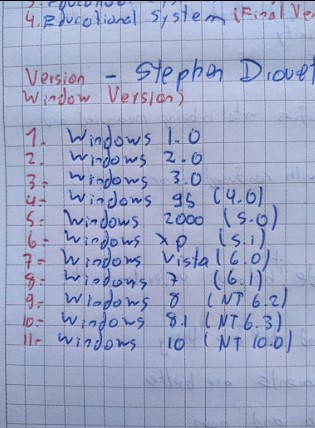 4. Educational System (Final Ve
Version - Stephen Drouet
Window Version)
1. Windows 1.0
2. Windows 2.0
3- Windows 3.0
4- Windows 95 (4.0)
5- Windows 2000 (5.0)
6- Windows xp (5.1)
7- Windows Vista (6.0)
8- Windows 7 (6.1)
9- Windows 8 (NT 6.2)
10- Windows 8.1 (NT 6.3)
11- Windows 10 (NT 10.0)